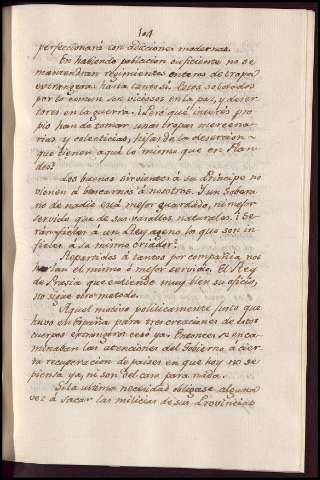 104
perfeccionará con adicciones modernas.
En habiendo poblacion suficiente no se
mantendran regimientos enteros de tropa
extrangera: hasta tanto si. Estos soldados
por lo comun son viciosos en la paz, y deser-
tores en la guerra. ¿Pero qué interés pro
pio han de tomar unas tropas mercena-
rias y colecticias, hijas de la desercion
que tienen aqui lo mismo que en Flan-
des?
Los buenos sirvientes á su Principe no
vienen á buscarnos á nosotros. Y un Sobera
no de nadie está mejor guardado, ni mejor
servido que de sus vasallos naturales. ¿Se
ran fieles á un Rey ageno lo que son in-
fieles á su mismo criador?
Repartidos á tantos por compañia nos
harian el mismo ó mejor servicio. El Rey
de Prusia que entiende muy bien su oficio,
no sigue otro metodo.
Aquel motivo politicamente justo que
huvo en España para tres creaciones de estos
cuerpos extrangeros cesó ya. Entonces se enca
minaban las atenciones del Gobierno á cier-
ta recuperacion de paises en que hoy no se
piensa ya, ni son del caso para nada.
Si la ultima necesidad obligase alguna
vez á sacar las milicias de sus Provincias